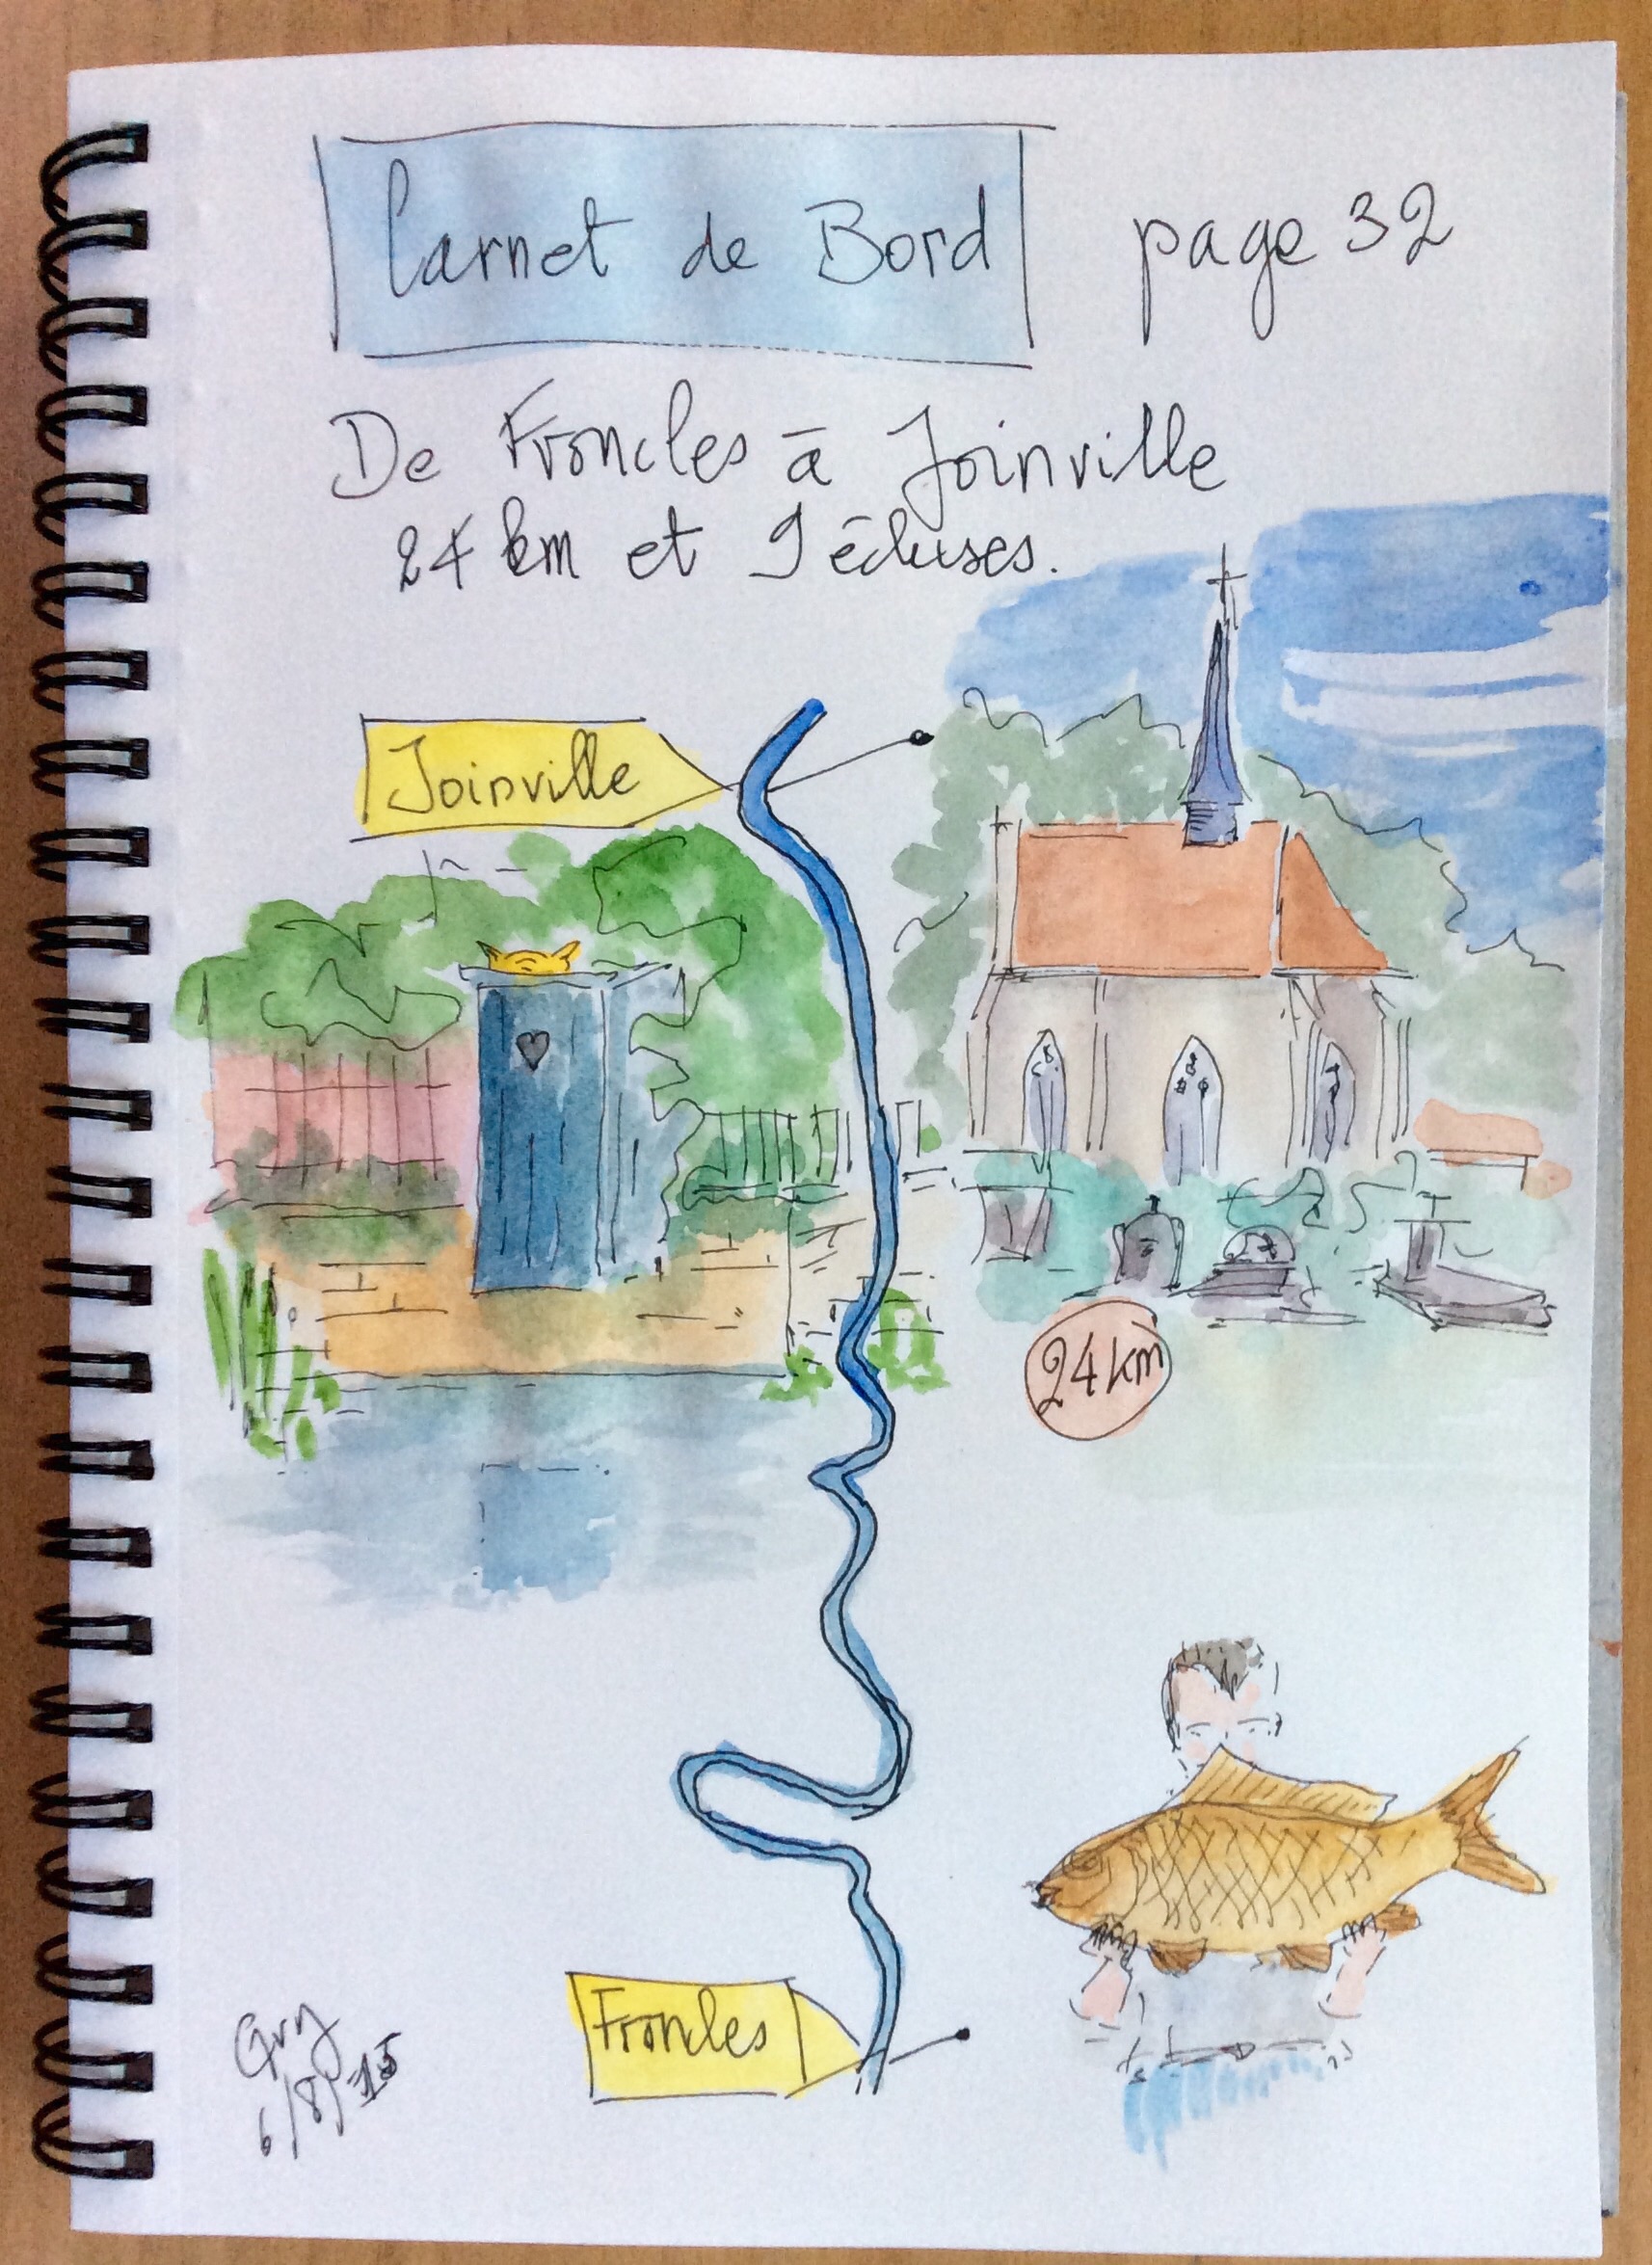 Carnet de Bord page 32
De Froncles à Joinville
24 km et 9 écluses.
Joinville
24 km
Froncles
Guy
6/8/15